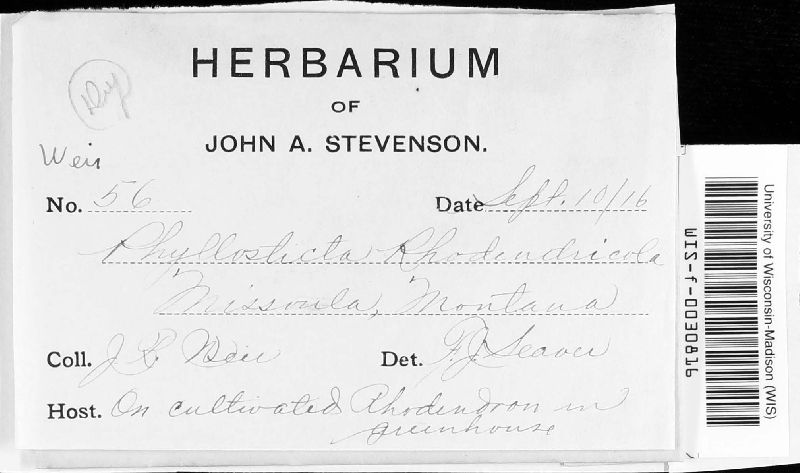 Dup
HERBARIUM
OF
JOHN A. STEVENSON.
Weir
No. 56 Date Sept. 10/16
Phyllosticta Rhodendricola
Missoula, Montana
Coll. J R Weir Det. F.J. Seaver
Host. On cultivated Rhodendron in
greenhouse
University of Wisconsin-Madison (WIS)
WIS-f-0030816